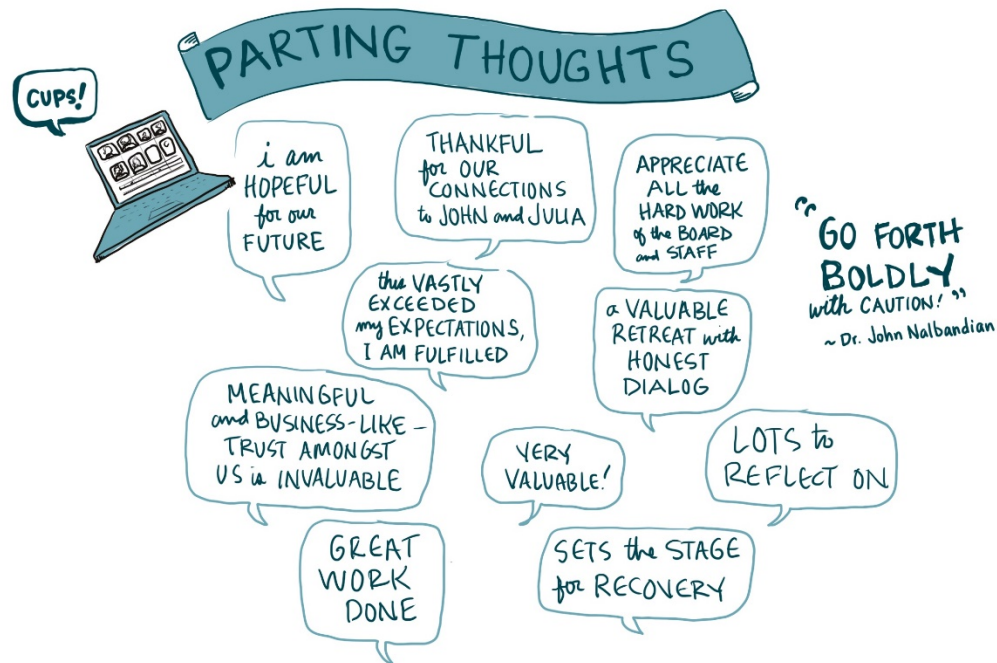 PARTING THOUGHTS
CUPS!
i am
HOPEFUL
for our
FUTURE
THANKFUL
for OUR
CONNECTIONS
to JOHN and JULIA
APPRECIATE
ALL the
HARD WORK
of the BOARD
and STAFF
"GO FORTH
BOLDLY
with CAUTION!"
~ Dr. John Nalbandian
this VASTLY
EXCEEDED
my EXPECTATIONS,
I AM FULFILLED
a VALUABLE
RETREAT with
HONEST
DIALOG
MEANINGFUL
and BUSINESS-LIKE -
TRUST AMONGST
US is INVALUABLE
VERY
VALUABLE!
LOTS to
REFLECT ON
GREAT
WORK
DONE
SETS the STAGE
for RECOVERY